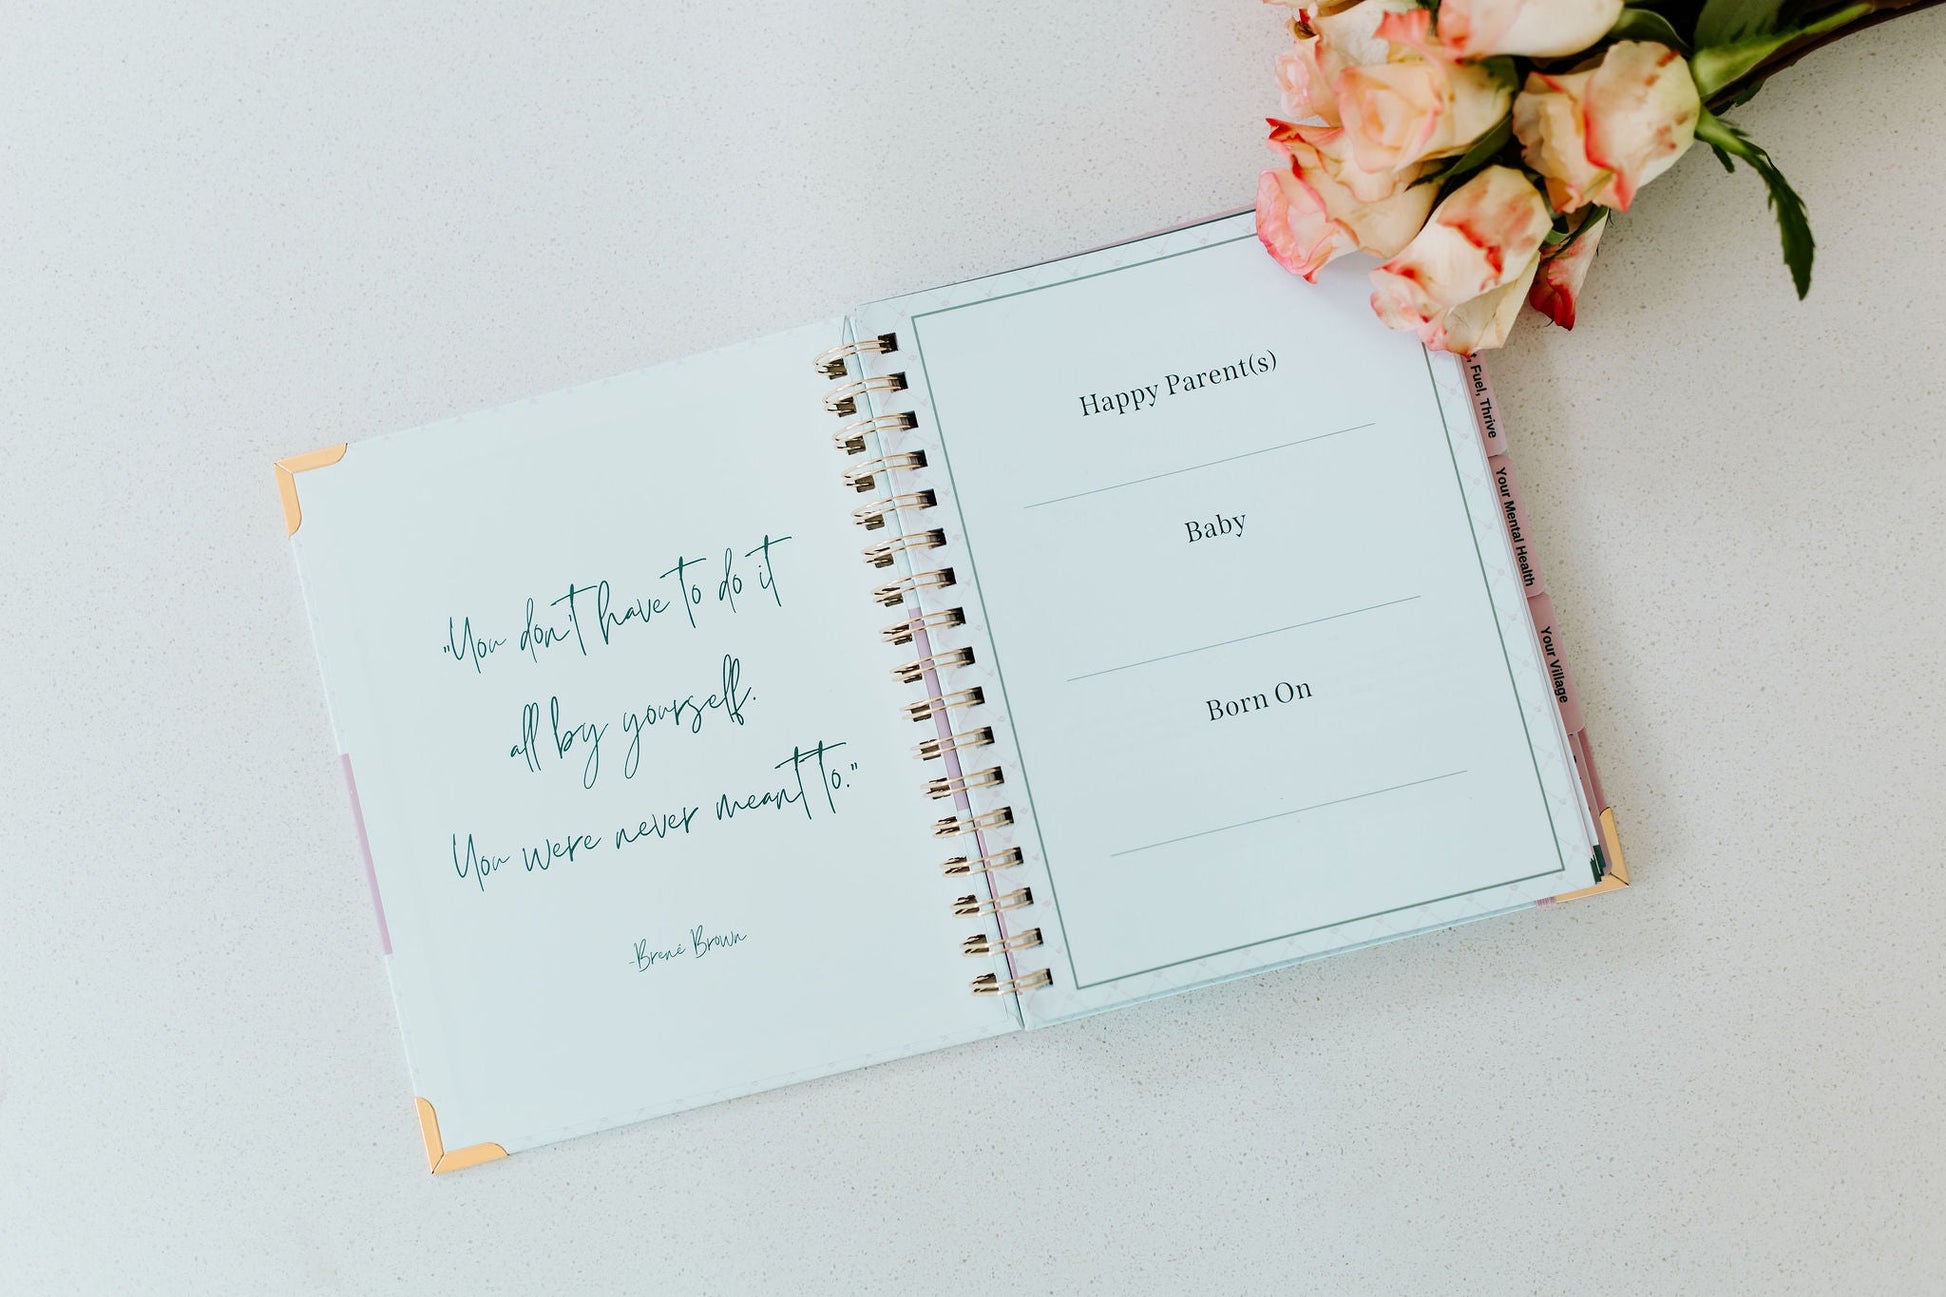 "You don't have to do it
all by yourself.
You were never meant to."
-Brené Brown
Happy Parent(s)
Baby
Born On
, Fuel, Thrive
Your Mental Health
Your Village